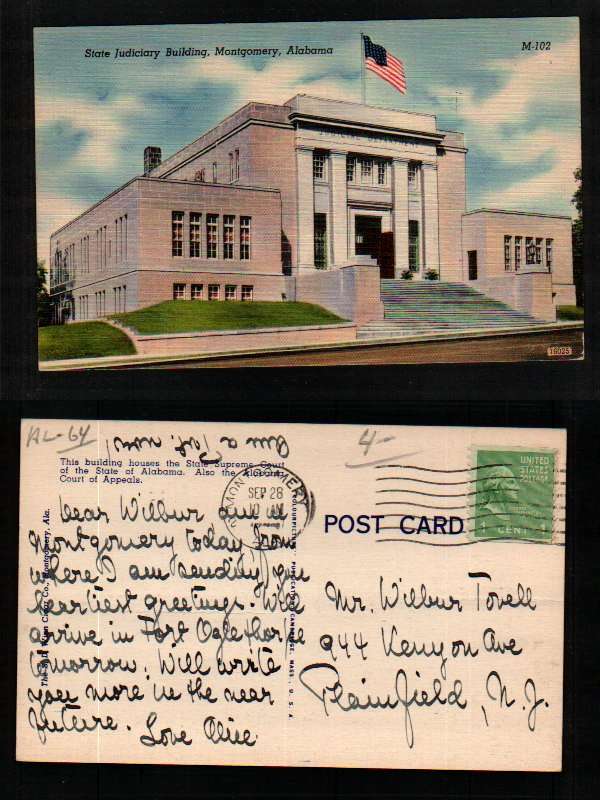 State Judiciary Building, Montgomery, Alabama
M-102
JUDICIAL DEPARTMENT
16025
AL-64
4-
am a Pvt. now!
This building houses the State Supreme Court
of the State of Alabama. Also the Alabama
Court of Appeals.
MONTGOMERY
SEP 28
UNITED
STATES
POSTAGE
1 CENT 1
POST CARD
Dear Wilbur am in
Montgomery today from
where I am sending you
heartiest greetings. Will
arrive in Fort Oglethorpe
tomorrow. Will write
you more in the near
future.
Love Alice
Mr. Wilbur Tovell
944 Kenyon Ave
Plainfield, N.J.
Co., Montgomery, Ala.
PUBLICATION, CAMBRIDGE, MASS., U.S.A.